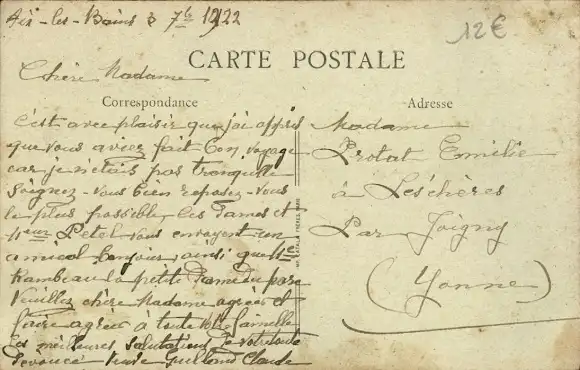 Aix-les-Bains 3 7b 1922
12€
CARTE POSTALE
Chère Madame
Correspondance
C'est avec plaisir que j'ai appris
que vous aviez fait bon voyage
car je n'étais pas tranquille
Soignez-vous bien reposez-vous
le plus possible les Dames et
Petel vous envoyent un
amical bonjour ainsi que
Rambeau la petite Dame du parc
Veuillez chère Madame agréer et
faire agréer à toute votre famille
les meilleures salutations de votre toute
dévouée Veuve Guillond Claude
Adresse
Madame
Protat Emilie
à Leschères
Par Joigny
(Yonne)